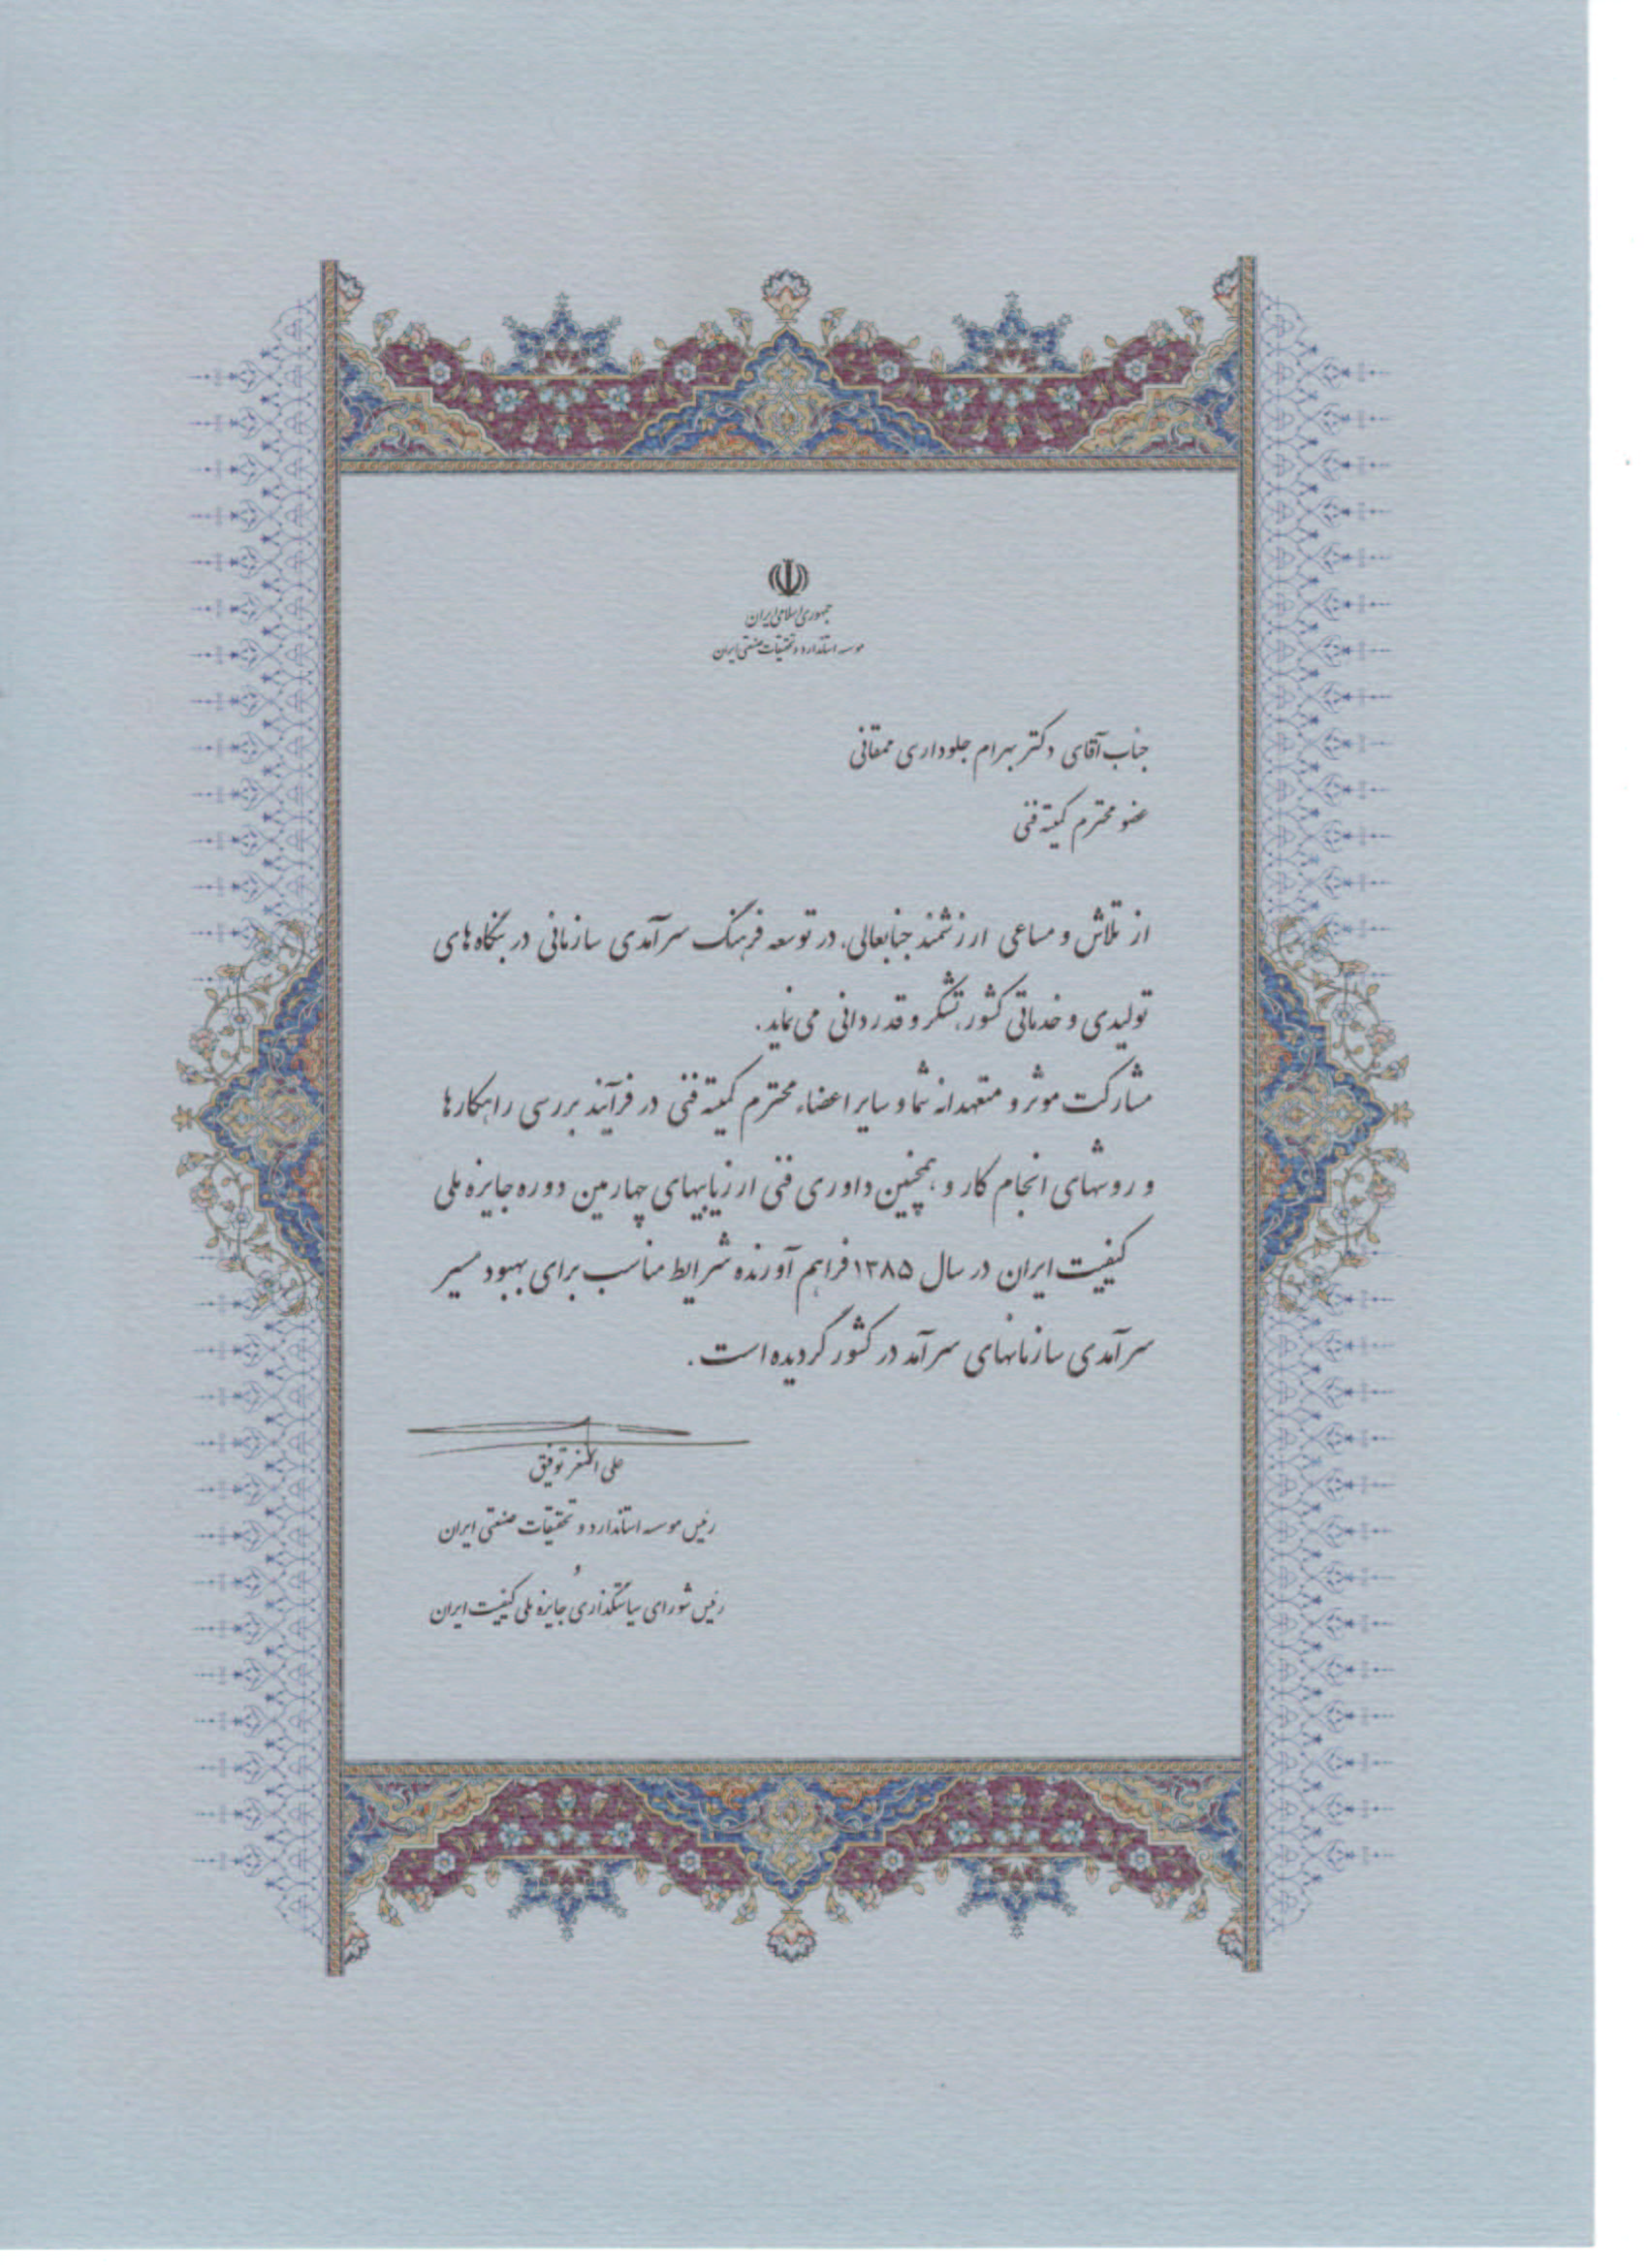 جمهوری اسلامی ایران
موسسه استاندارد و تحقیقات صنعتی ایران
جناب آقای دکتر بهرام جلوداری ممقانی
عضو محترم کمیته فنی
از تلاش و مساعی ارزشمند جنابعالی، در توسعه فرهنگ سرآمدی سازمانی در بنگاه های
تولیدی و خدماتی کشور، تشکر و قدردانی می نماید.
مشارکت موثر و متعهدانه شما و سایر اعضاء محترم کمیته فنی در فرآیند بررسی راهکارها
و روشهای انجام کار و همچنین داوری فنی ارزیابیهای چهارمین دوره جایزه ملی
کیفیت ایران در سال ۱۳۸۵ فراهم آورنده شرایط مناسب برای بهبود مسیر
سرآمدی سازمانهای سرآمد در کشور گردیده است.
علی اصغر توفیق
رئیس موسسه استاندارد و تحقیقات صنعتی ایران
و
رئیس شورای سیاستگذاری جایزه ملی کیفیت ایران